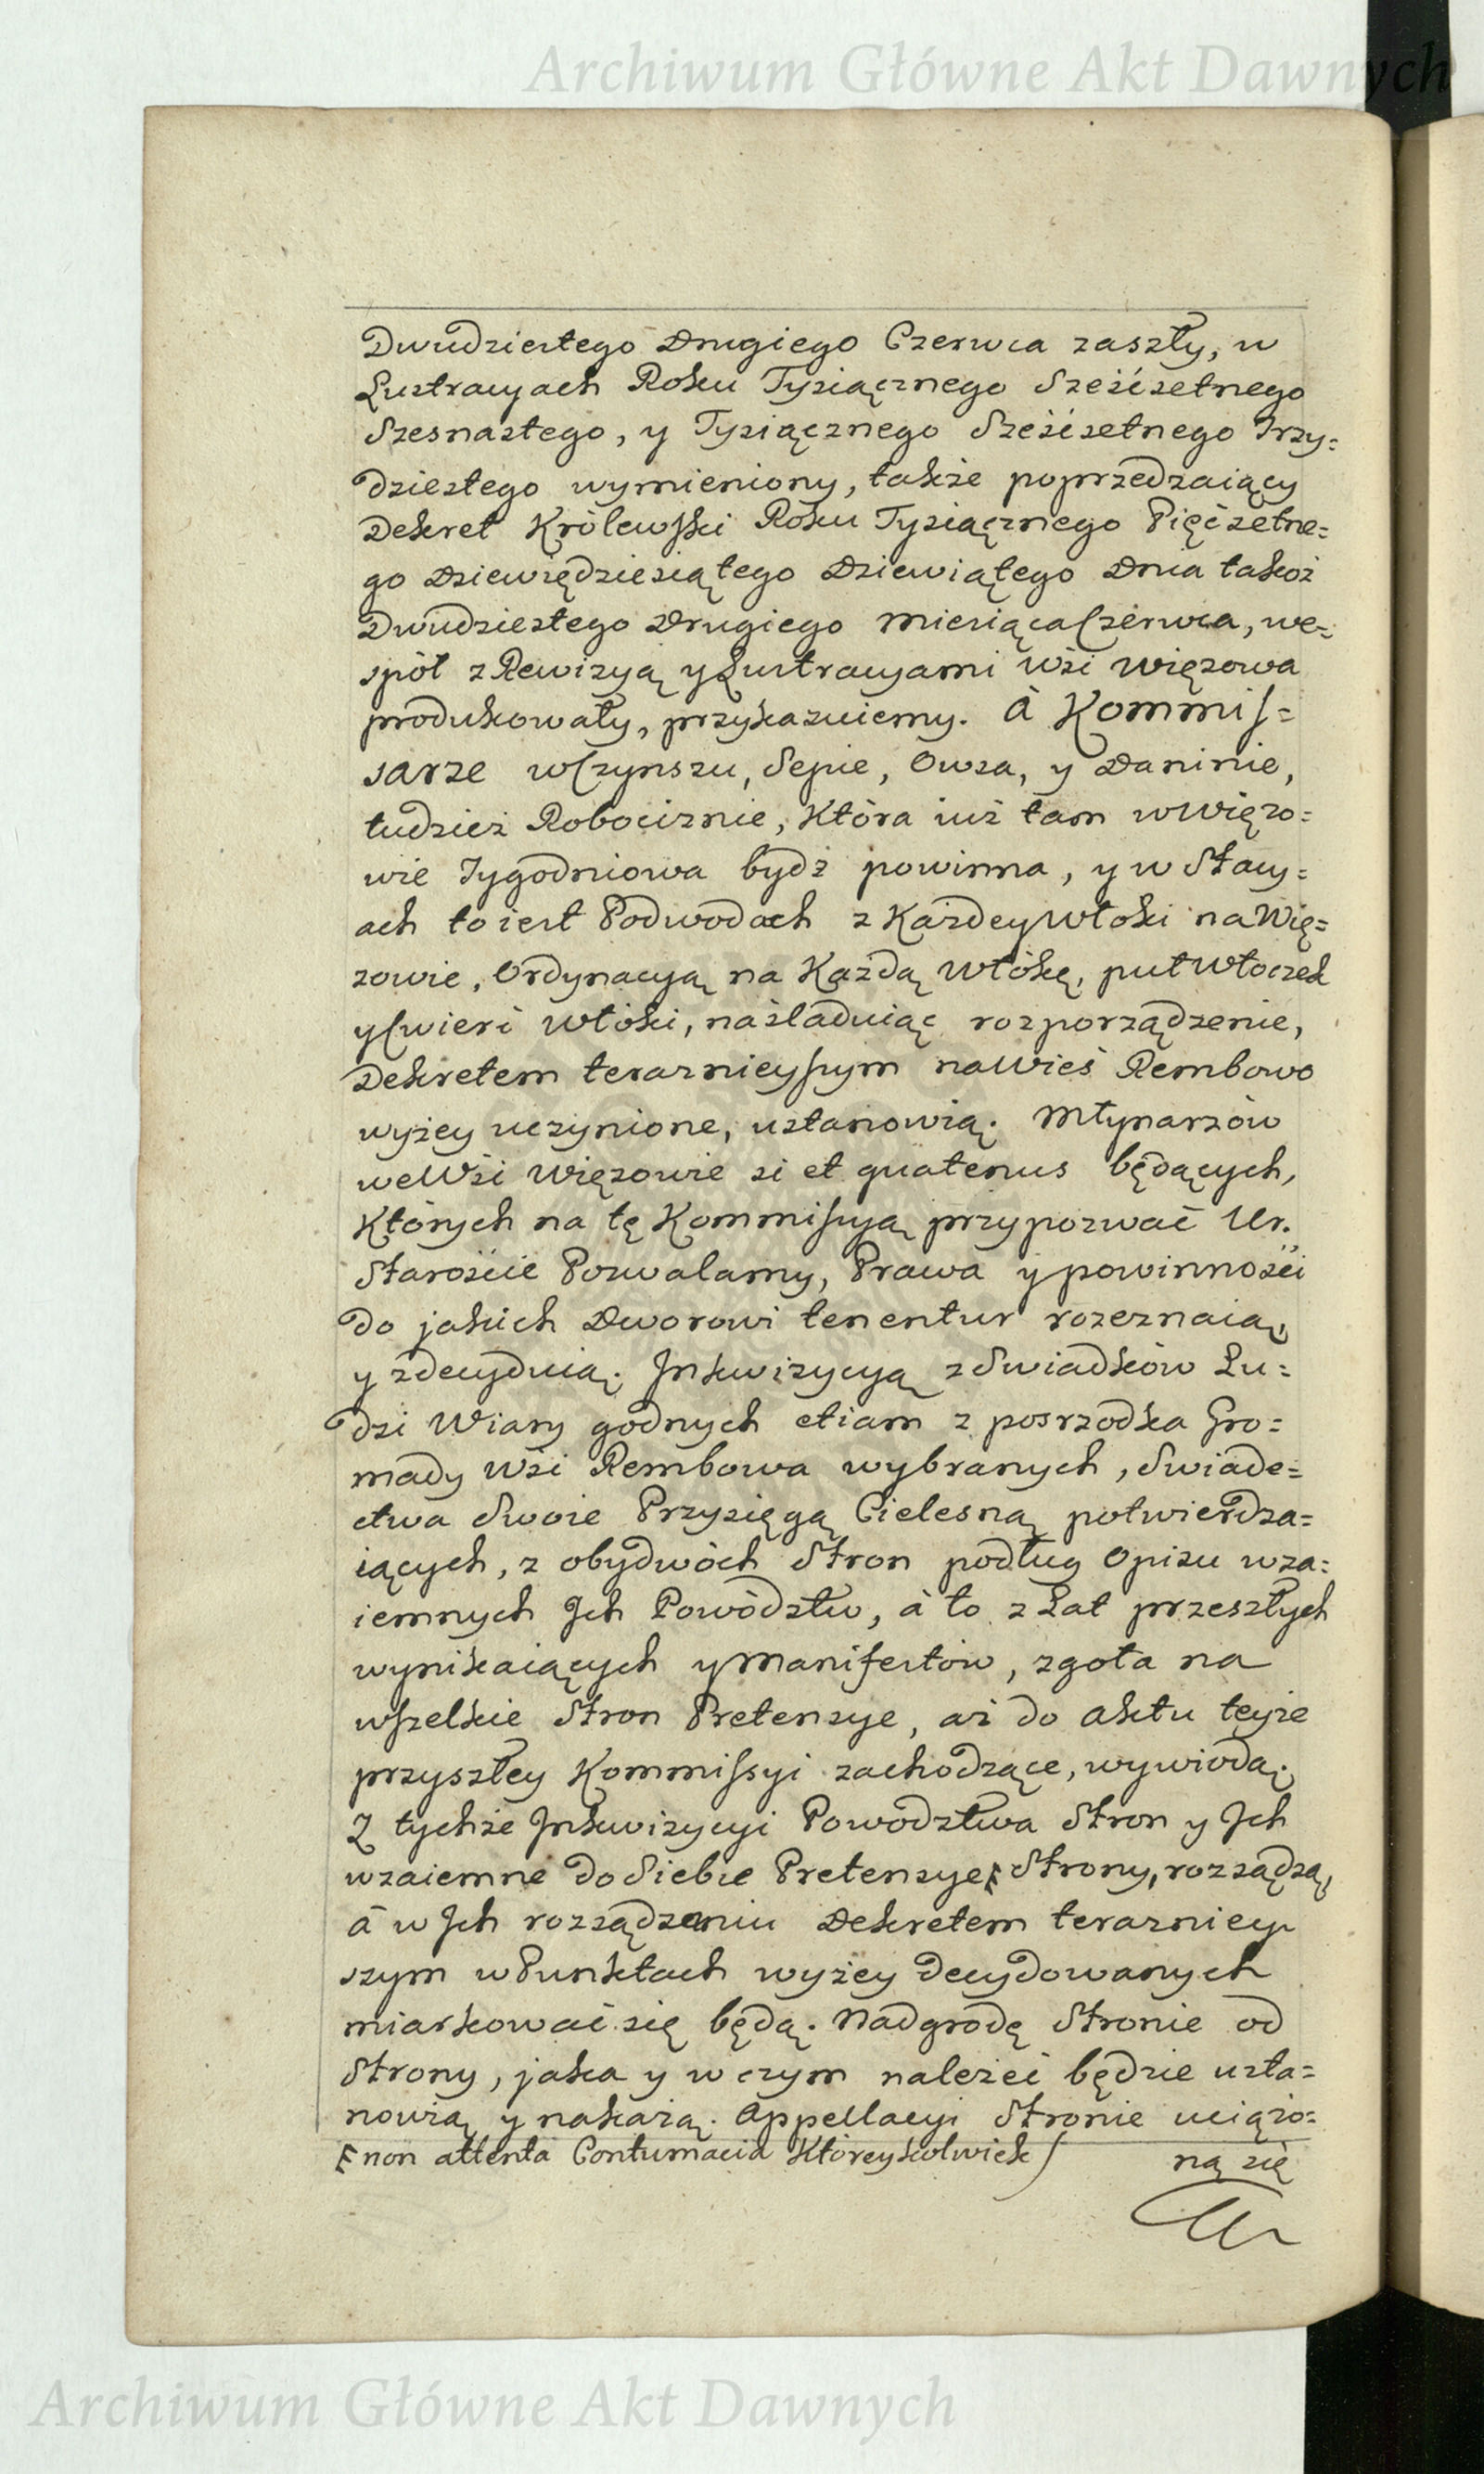 Archiwum Główne Akt Dawnych
Dwudziestego Drugiego Czerwca zaszły, w
Lustracyach Roku Tysiącznego Sześćsetnego
Szesnastego, y Tysiącznego Sześćsetnego Trzy=
dziestego wymieniony, także poprzedzaiący
Dekret Królewski Roku Tysiącznego Pięćsetne=
go Dziewiędziesiątego Dziewiątego Dnia takoż
Dwudziestego Drugiego Miesiąca Czerwca, we=
spół z Rewizyą y Lustracyami Wsi Więzowa
produkowały, przykazuiemy. à Kommis=
sarze w Czynszu, Sepie, Owsa, y Daninie,
tudzież Robociznie, Która iuż tam w Więzo=
wie Tygodniowa bydź powinna, y w Stacy=
ach to iest Podwodach z Każdey Włoki na Wię=
zowie, Ordynacyą na Każdą Włókę, puł Włoczek
y Cwierć Włóki, naśladuiąc rozporządzenie,
Dekretem teraznieyszym na Wieś Rembowo
wyżey uczynione, ustanowią. Młynarzów
we Wsi Więzowie si et quatenus będących,
Których na tę Kommissyą przypozwać Ur.
Starościie Pozwalamy, Prawa y powinności
do jakich Dworowi tenentur rozeznaią,
y zdecyduią. Inkwizycyą z Swiadków Lu=
dzi Wiary godnych etiam z posrzodka Gro=
mady Wsi Rembowa wybranych, Swiade=
ctwa Swoie Przysięgą Cielesną potwierdza=
iących, z obydwóch Stron podług Opisu wza=
iemnych Ich Powództw, à to z Lat przeszłych
wynikaiących y Manifestów, zgoła na
wszelkie Stron Pretensye, aż do Aktu teyże
przyszłey Kommissyi zachodzące, wywiodą.
Z tychże Inkwizycyi Powodztwa Stron y Ich
wzaiemne do Siebie Pretensye, Strony, rozsądzą,
à w Ich rozsądzeniu Dekretem terazniey=
szym w Punktach wyżey decydowanych
miarkować się będą. Nadgrodę Stronie od
Strony, jaka y w czym należeć będzie usta=
nowią y nakażą. Appellacyi Stronie uciążo=
non attenta Contumacia Któreykolwiek /
ną się
Archiwum Główne Akt Dawnych